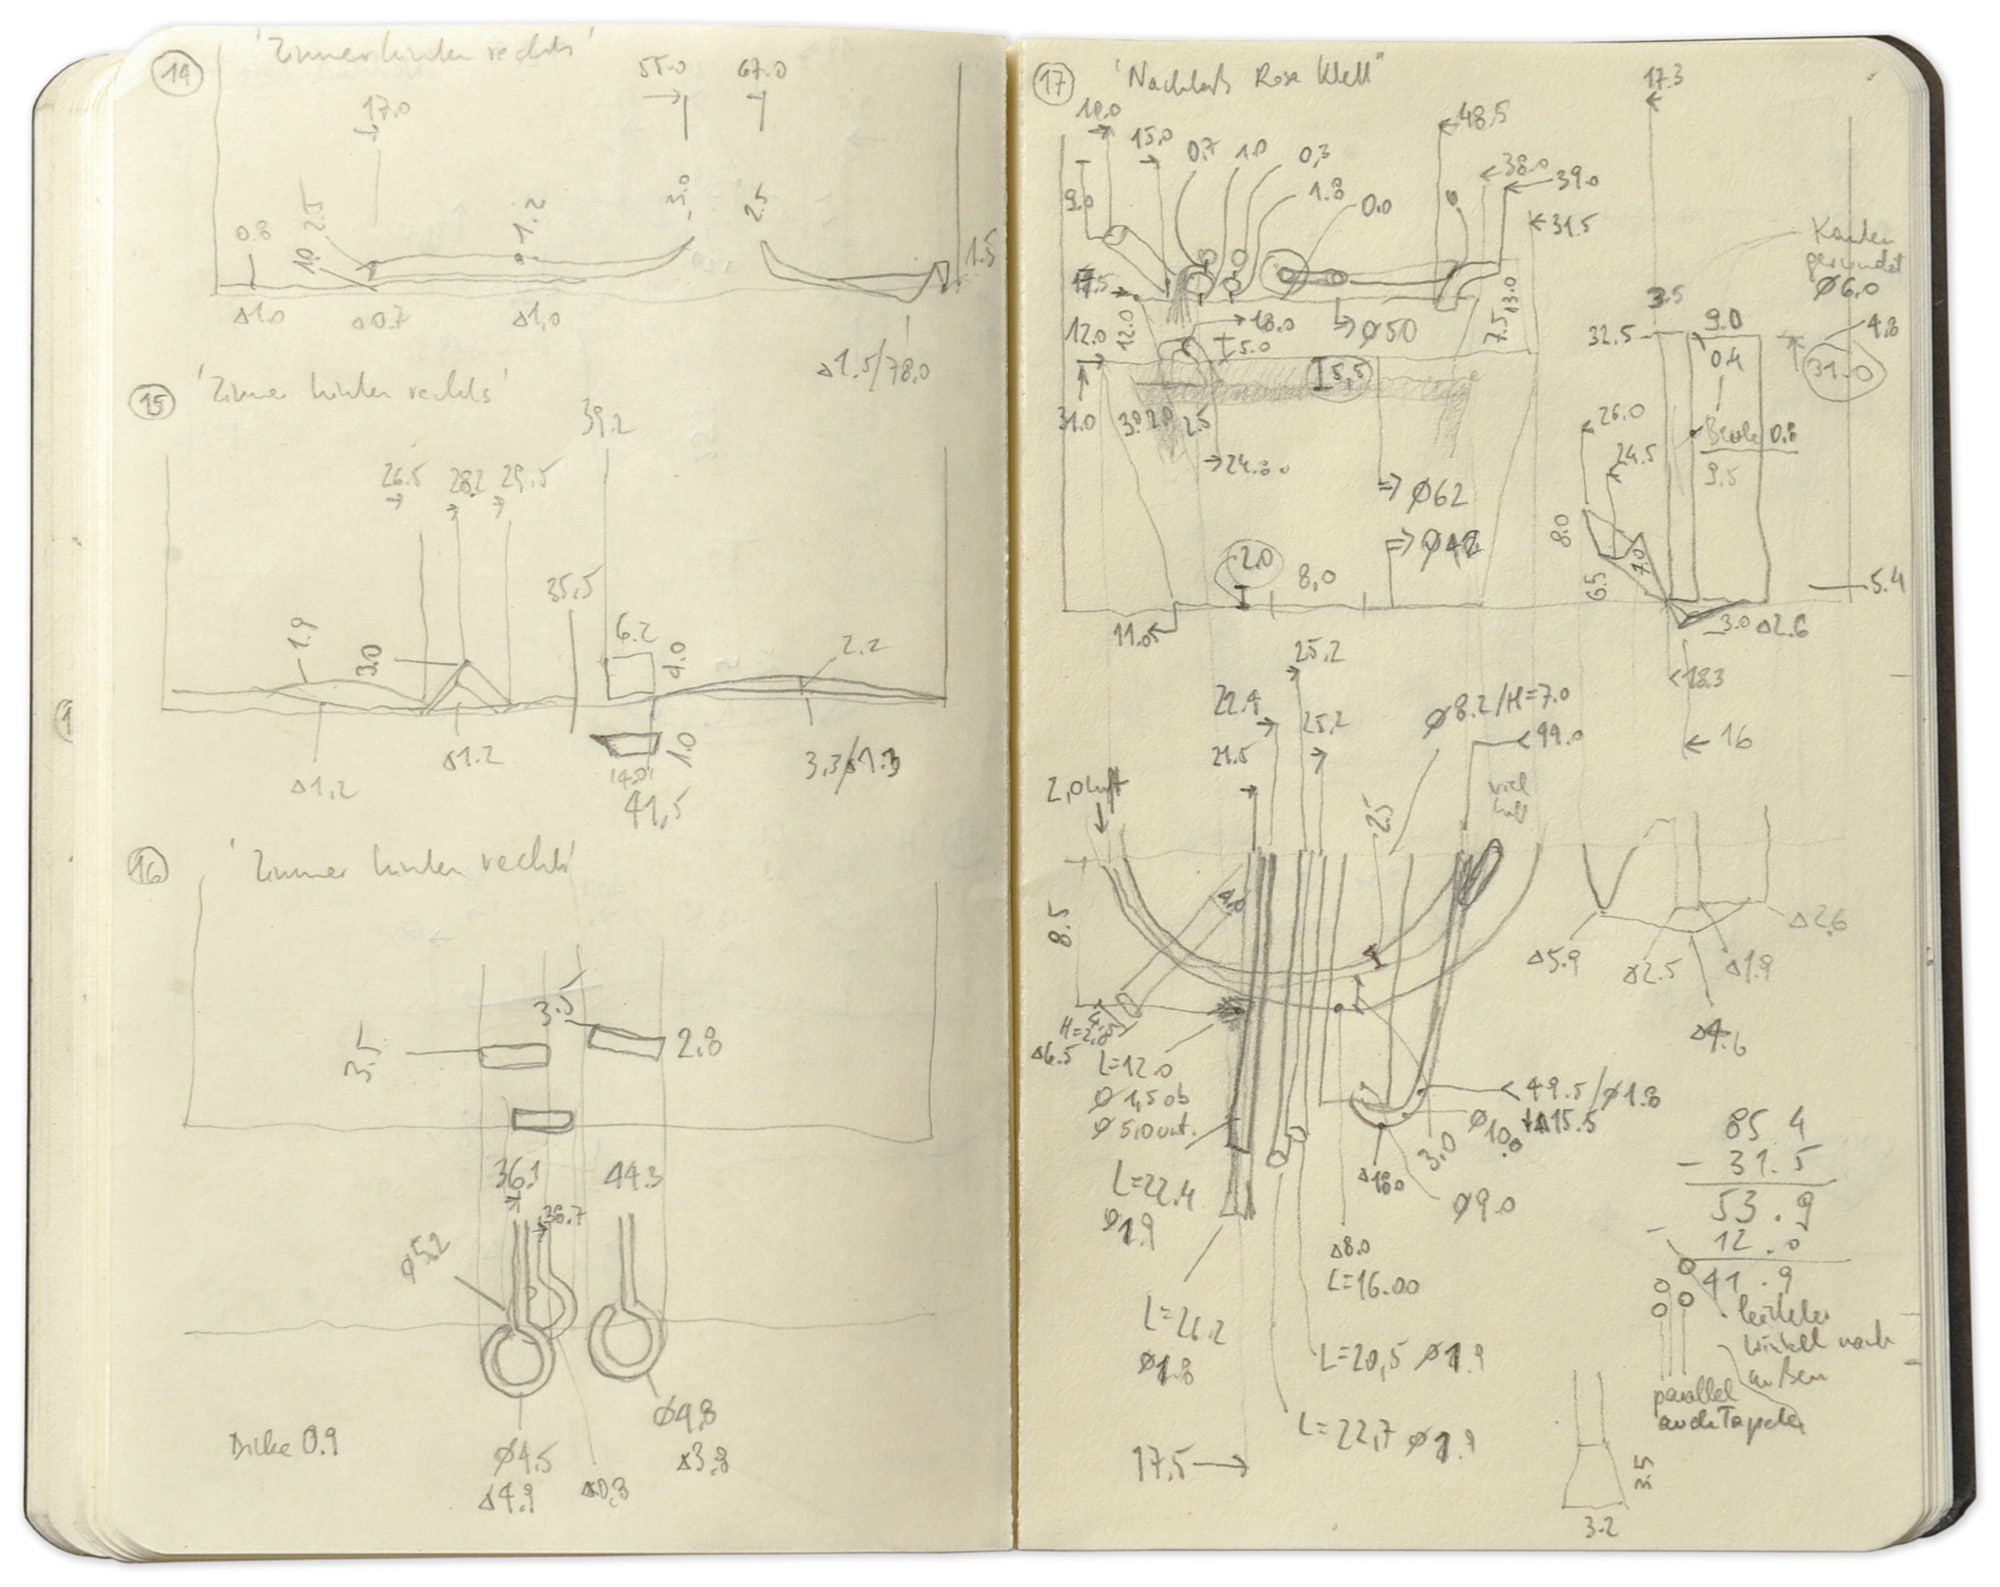 14 'Zimmer hinten rechts'
55.0 67.0
17.0
3.0 2.5
2.5
0.8 1.0 1.2 1.5
Δ1.0 Δ0.7 Δ1,0
Δ1.5/78.0
15 'Zimmer hinten rechts'
39.2
26.5 28.2 29.5
35,5
1.9 3.0 6.2 4.0 2.2
Δ1,2 Δ1.2 1.0
41,5
16 'Zimmer hinten rechts'
3.5
3.5 2.8
36.1 44.3
36.7
Ø5.2
Ø4,8
Δ3.8
Dicke 0.9
Ø4.5
Δ4.9 Δ0,8
1
17 'Nachlaß Rosa Klett"
17.3
10.0
15.0 0.7 1.0 0,3 48.5
9.0 1.8 0.0 38.0 39.0
31.5
Kanten
gerundet
Ø6.0
17.5 13.0
12.0 12.0 18.0 Ø50 7.5
5.0 5,5
3.5
32.5 9.0 4.8
0.4 31.0
31.0 3.0 2.0 2.5
26.0
Beule 0.8
24.5 9,5
24.0
Ø62
Ø42
8.0 7.0 6.5
2.0 8,0 5.4
11.05 3.0 Δ2.6
25,2
18.3
22.4 25,2 Ø8.2/H=7.0
21.5 99.0 16
2,0 Luft
2.5
8.5 4.0
Δ2.6
Δ5.9 Ø2.5 Δ1.9
Δ4.6
H=2,8
Δ6.5
L=12.0
Ø1,5 ob
Ø5,0 unt.
49.5/Ø1.8
Ø10.0 Δ15.5
3.0
Δ18.0
Ø9.0
L=22.4
Ø1.9
85.4
- 31.5
53.9
- 12.0
41.9
Δ8.0
L=16.00
L=21.2
Ø1.8
L=20,5 Ø1.9
L=22,7 Ø1.9
17,5
Winkel nach
außen
parallel
auch Tapete
3.5
3.2